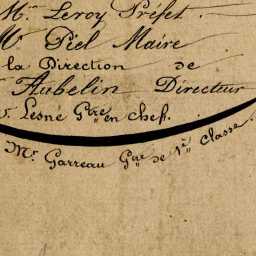 Mr. Leroy Préfet.
Mr. Piel Maire
la Direction de
Aubelin Directeur
Lesné Gtre. en chef.
Mr. Garreau Gtre. de 1re. Classe.